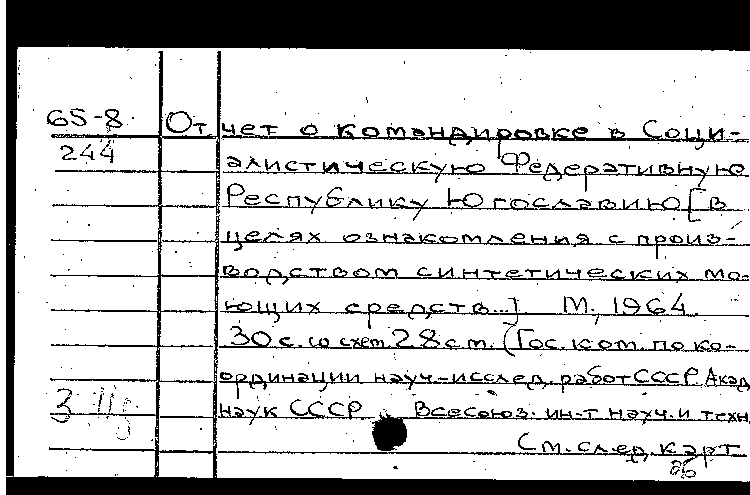 65-8 Отчет о командировке в Соци-
244 алистическую Федеративную
Республику Югославию [в
целях ознакомления с произ-
водством синтетических мо-
ющих средств...] М., 1964.
30 с. со схем. 28 см. (Гос. ком. по ко-
ординации науч.-исслед. работ СССР. Акад.
наук СССР. Всесоюз. ин-т науч. и техн.
См. след. карт.